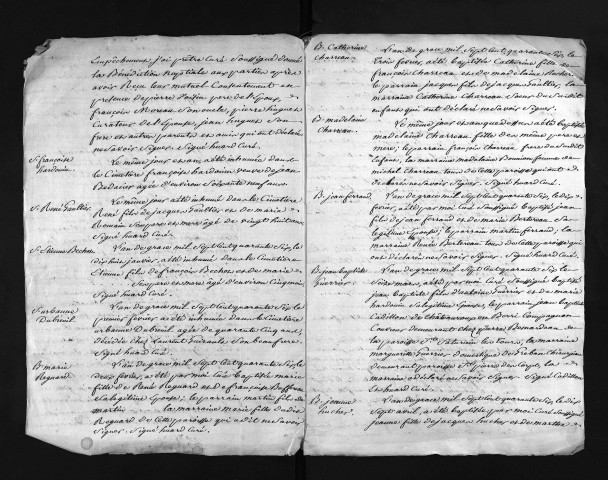 Empêchement j'ai prêtre curé soussigné donné
la Bénédiction nuptiale aux parties après
avoir Reçu leur mutuel Consentement en
présence de pierre
françois Moreau son oncle, pierre hugues
Curateur de l'Epouse, jean hugues son
frere et autres parents et amis qui ont déclaré
ne savoir signer. Signé huard Curé.
S. françoise
hardouin
Le même jour et an a été inhumée dans
le Cimetière françoise hardouin veuve de jean
Bedacier agée d'environ soixante neuf ans.
Signé huard Curé.
S. René Gaultier
Le même jour a été inhumé dans le Cimetière
René fils de jacques Gaultier et de marie
Romain ses pere et mere agé de vingt huit ans
Signé huard Curé.
S. Etienne Bechon
L'an de grace mil Sept Cent quarante Six, le
dix huit janvier, a été inhumé dans le Cimetière
Etienne fils de françois Bechon et de marie
ses pere et mere agé d'environ Cinq mois,
Signé huard Curé.
S. urbanne
Dubreuil
L'an de grace mil Sept Cent quarante Six, le
premier fevrier a été inhumée dans le Cimetière
urbanne Dubreuil agée de quarante Cinq ans,
décédée chez Laurent son beau frere.
Signé huard Curé.
B. marie
Regnard
L'an de grace mil Sept Cent quarante Six, le
deux fevrier, a été par moi Curé baptisée marie
fille de René Regnard et de françoise
sa legitime Epouse; le parrain martin fils de
martin la marraine marie fille
Regnard de cette paroisse qui a dit ne savoir
Signer. Signé huard Curé.
B. Catherine
Charreau
L'an de grace mil Sept Cent quarante Six, le
trois fevrier, a été baptisée Catherine fille de
françois Charreau et de madelaine
le parrain jacques fils de jacques Gaultier, la
marraine Catherine Charreau Soeur de
enfans qui ont déclaré ne savoir Signer.
B. madelaine
Charreau.
Le même jour et an que dessus a été baptisée
madelaine Charreau fille des même pere et
mere; le parrain françois Charreau frere de
Enfant, la marraine madelaine femme de
michel Charreau tous de cette paroisse qui ont
déclaré ne savoir Signer. Signé huard Curé.
B. jean ferrand
L'an de grace mil Sept Cent quarante Six, le dix
fevrier, a été par moi Curé Soussigné baptisé jean
fils de jean ferrand et de marie Bertereau Sa
legitime Epouse; le parrain martin ferrand; la
marraine Renée Bertereau tous de cette paroisse qui
ont déclaré ne savoir Signer. Signé huard Curé.
B. jean baptiste
Guerrier.
L'an de grace mil Sept Cent quarante Six le
Seize mars, a été par moi Curé Soussigné baptisé
jean baptiste fils d'antoine Guerrier et de marie
hardouin Sa legitime Epouse; le parrain jean baptiste
Cadillon de Châteauroux en Berri Compagnon
Couvreur demeurant chez Bonardeau de
la paroisse St Saturnin de tours, la marraine
marguerite Guerrier, domestique de
demeurant paroisse St pierre des Corps, la
marraine a déclaré ne savoir Signer. Signé Cadillon
et huard Curé.
B. jeanne
Luchet.
L'an de grace mil Sept Cent quarante Six, le dix
Sept avril, a été baptisée par moi Curé Soussigné
jeanne fille de jacques Luchet et de marthe